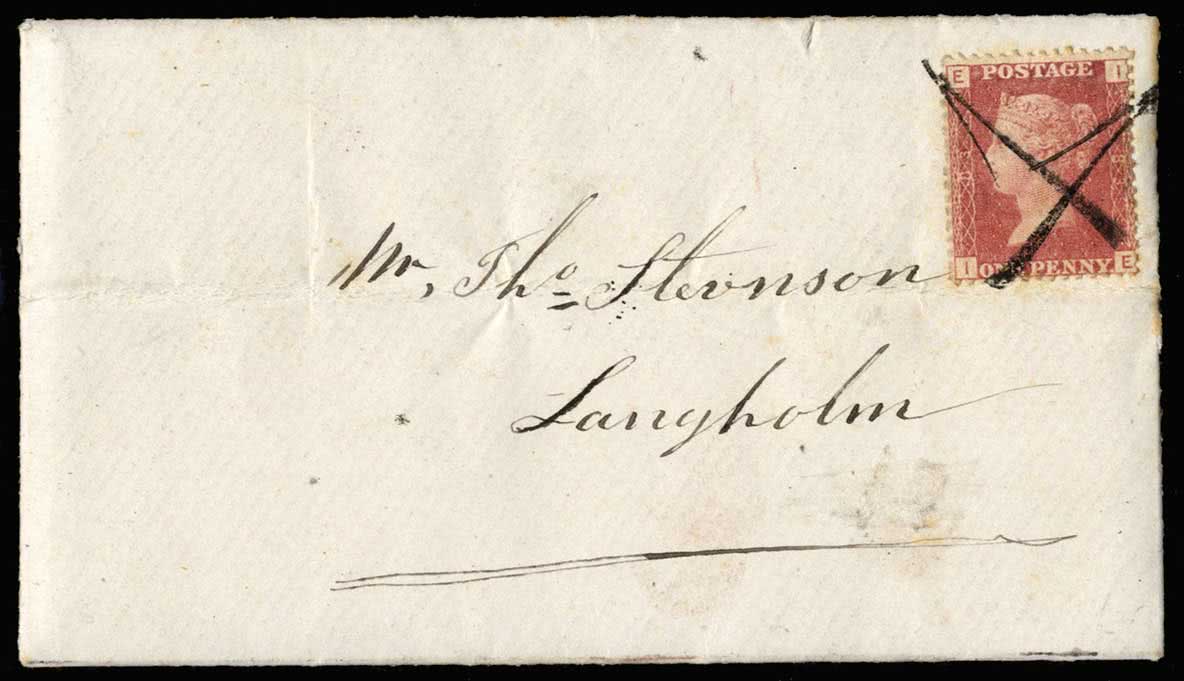 E POSTAGE I
I ONE PENNY E
Mr, Tho Stevnson
Langholm